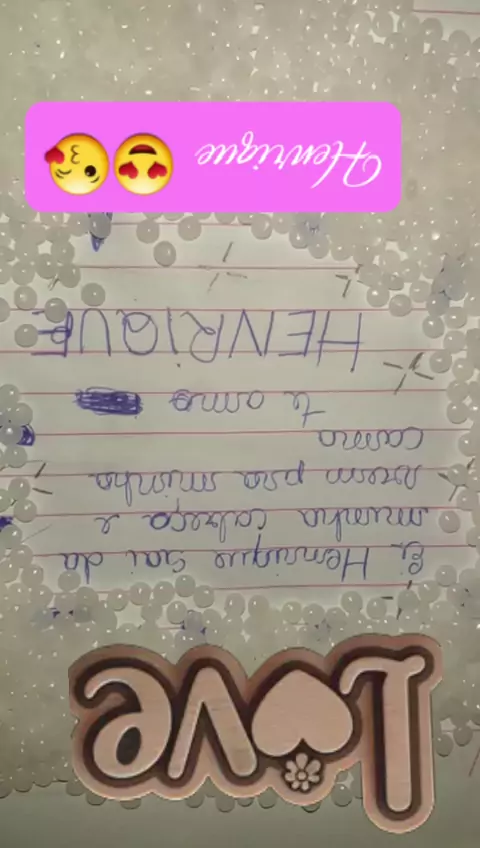 Love
Ei Henrique sai da
minha cabeça e
vem pra minha
cama
te amo
HENRIQUE
Henrique 😍😘